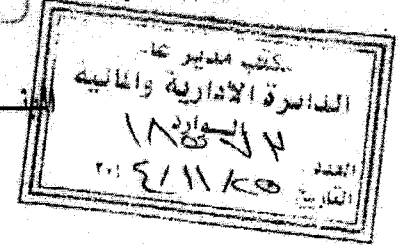 مكتب مدير عام
الدائرة الادارية والمالية
الوارده
العدد
التاريخ ٢٥ / ١١ / ٢٠١٤